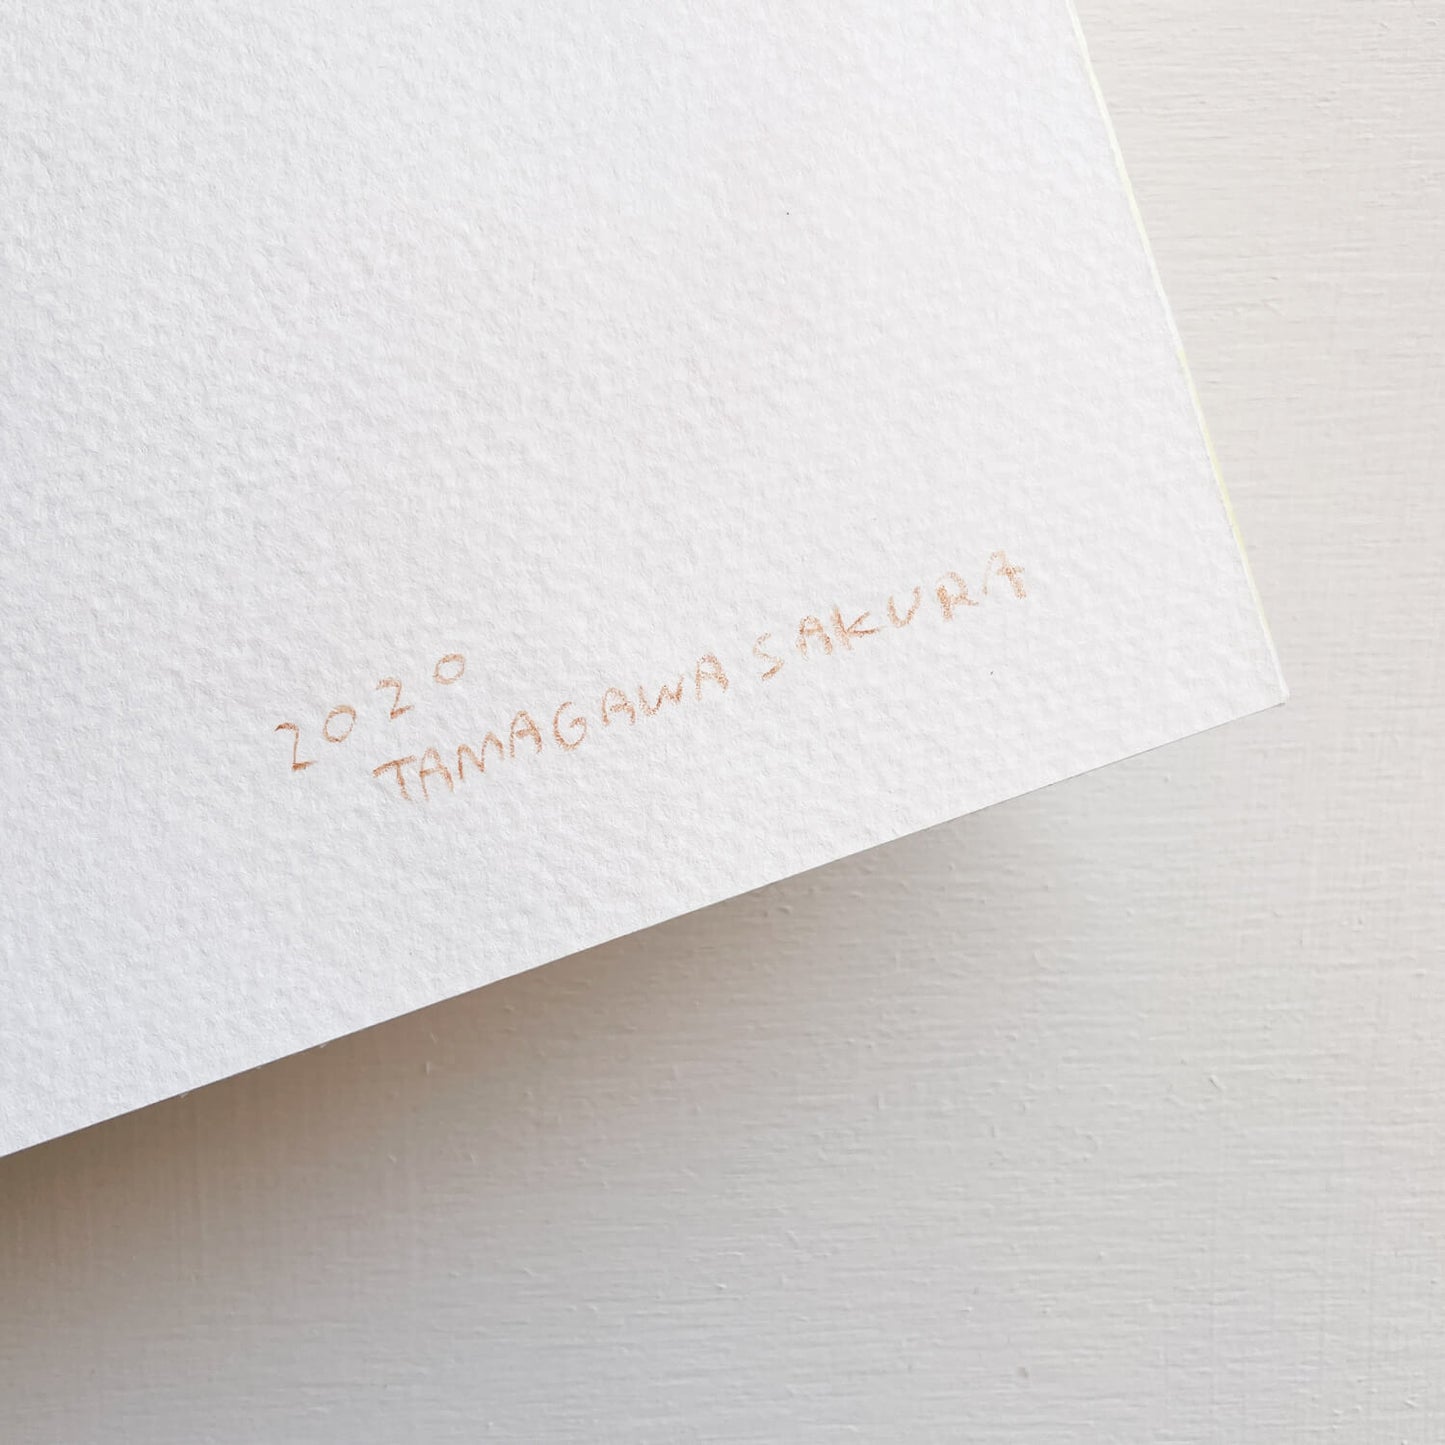 2020
TAMAGAWA SAKURA